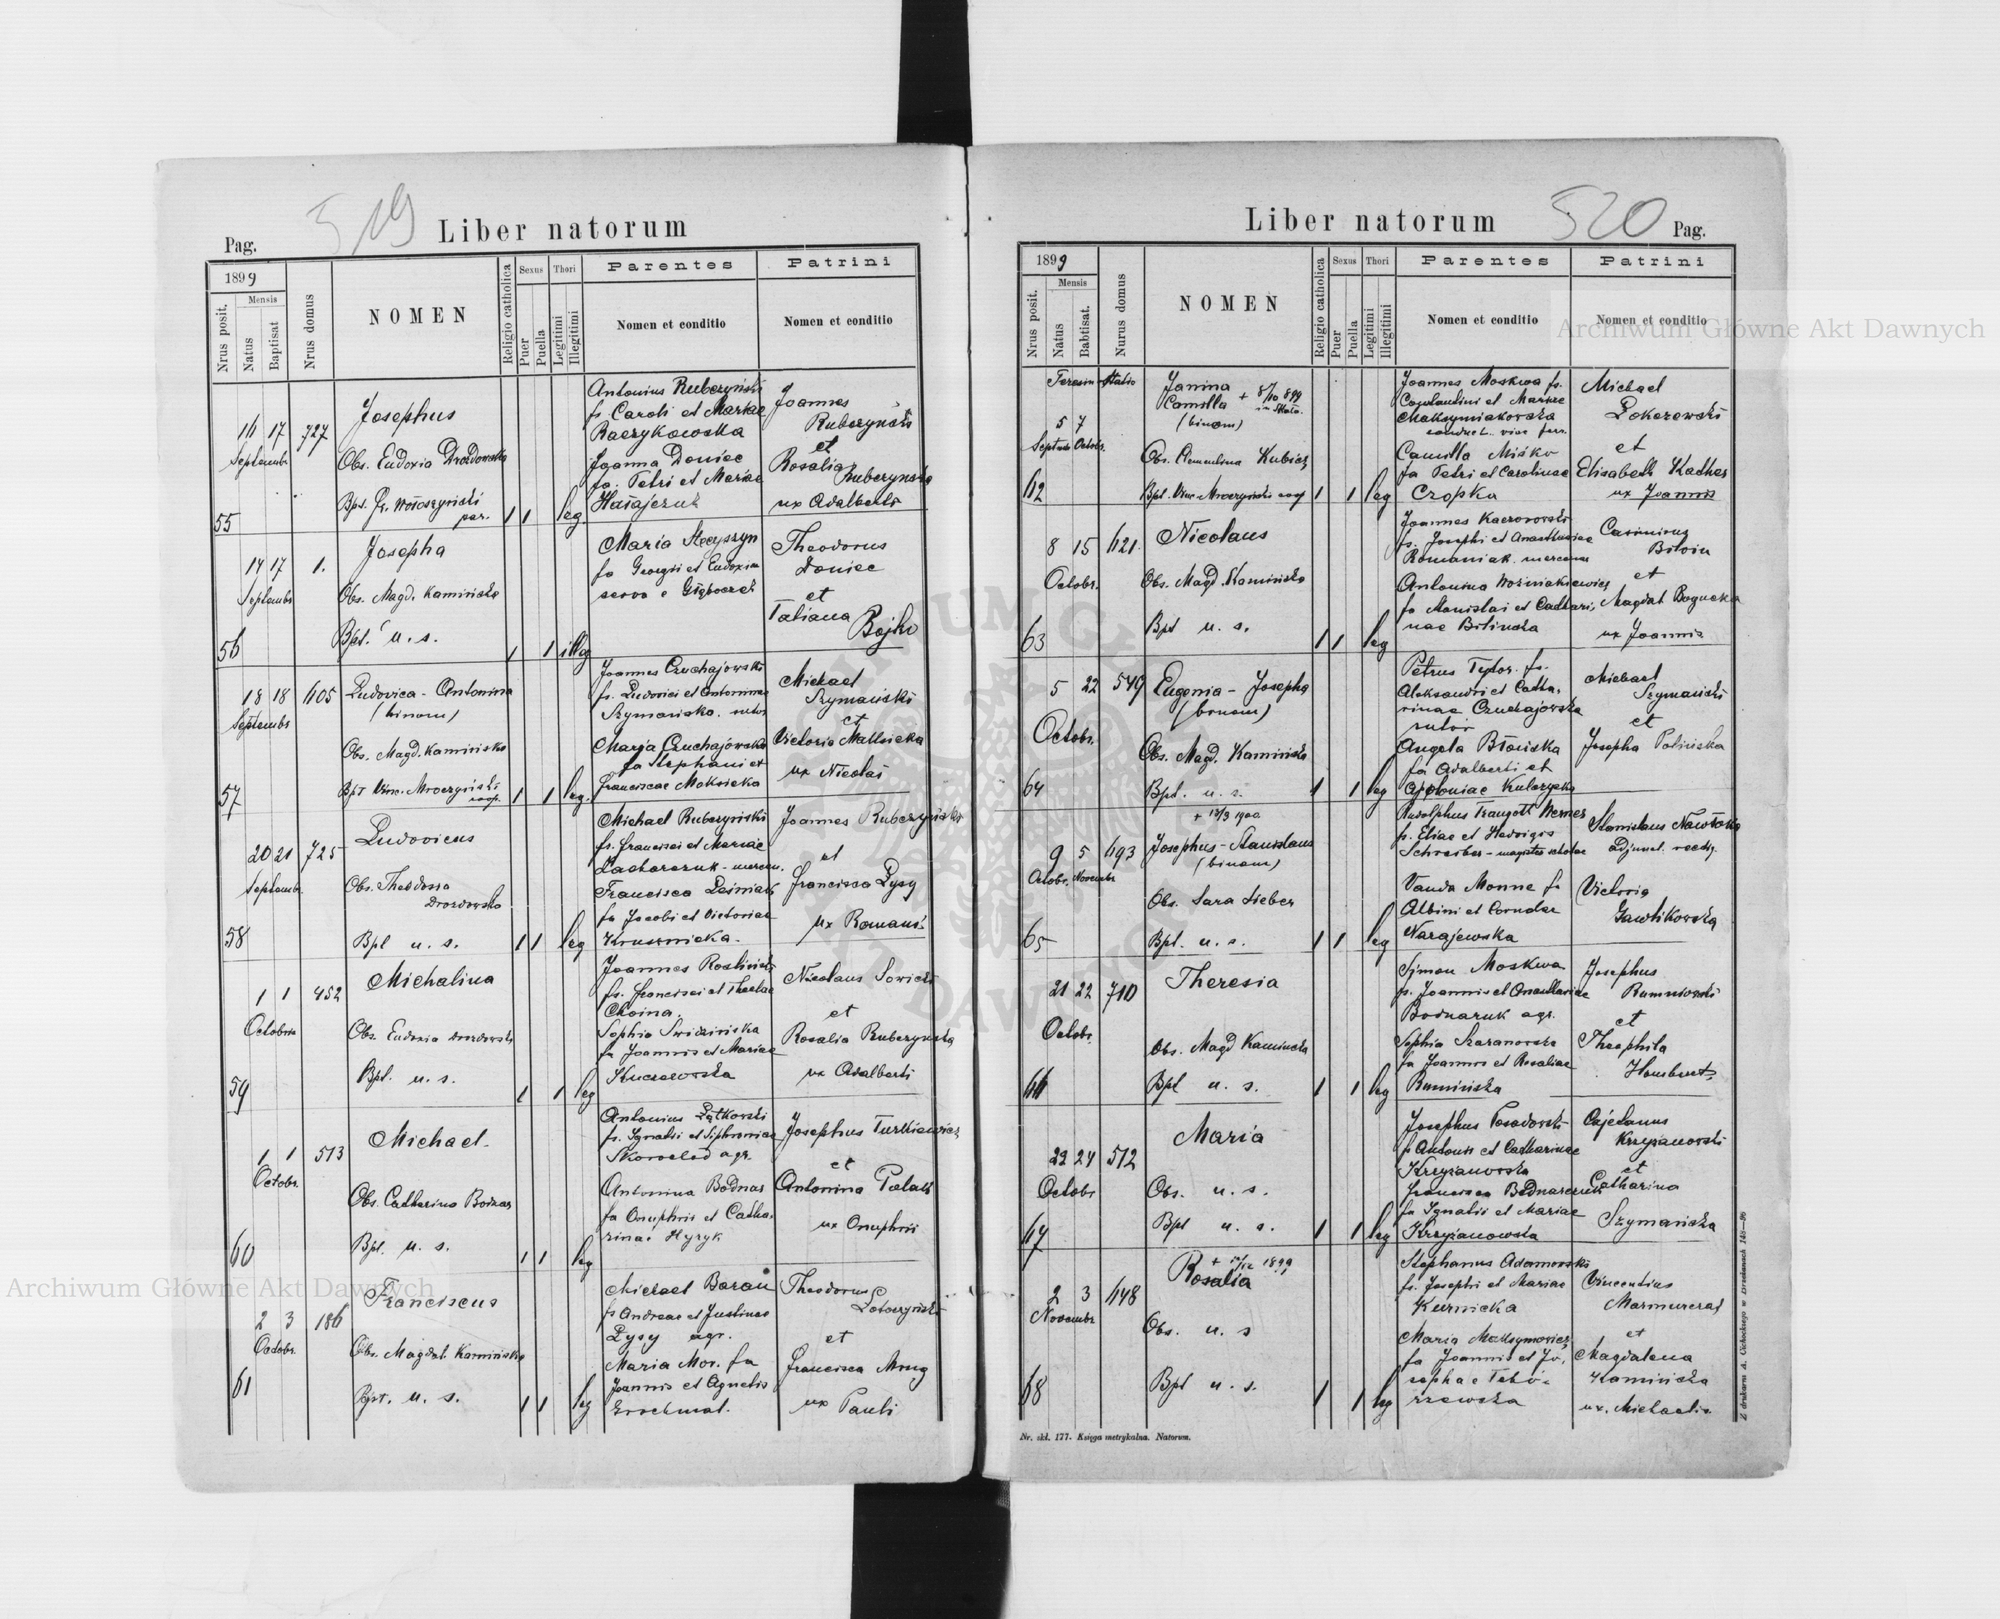 519
Liber natorum
Pag.
1899
Mensis
Nrus posit.
Natus
Baptisat
Nrus domus
NOMEN
Religio catholica
Sexus
Puer
Puella
Thori
Legitimi
Illegitimi
Parentes
Nomen et conditio
Patrini
Nomen et conditio
55
16 17
Septembr.
727
Josephus
Obs. Eudoxia Drozdowska
Bpt. Fr. Wołoszyński
par.
1 1 leg.
Antonius Ruberzyński
fs. Caroli et Mariae
Raczykowska
Joanna Doniec
fa. Petri et Mariae
Joannes
Ruberzyński
et
Rosalia
Ruberzyńska
ux Adalberti
56
14 17
Septembr
1.
Josepha
Obs. Magd. Kamińska
Bpt. u. s.
1 1 illeg
Maria
fa Georgii et Eudoxiae
Theodorus
Doniec
et
Tatiana Bojko
57
18 18
Septembr
1105
Ludovica - Antonina
(binom)
Obs. Magd. Kamińska
Bpt Vinc. Mroczyński
coop.
1 1 leg.
Joannes Czuchajowski
fs. Ludovici et Antoninae
Szymańska. sutor
Maria Czuchajowska
fa Stephani et
Franciscae Maksicka
Michael
Szymański
et
Victoria Maksicka
ux Nicolai
58
20 21
Septembr.
725
Ludovicus
Obs. Theodosia
Drozdowska
Bpt u. s.
1 1 leg
Michael Ruberzyński
fs. Francisci et Mariae
Francisca Leśniak
fa Jacobi et Victoriae
Krusznicka.
Joannes Ruberzyński
et
Francisca Łysy
ux Romani
59
1 1
Octobris
452
Michalina
Obs. Eudoxia Drozdowska
Bpt. u. s.
1 1 leg
Joannes
fs. Francisci et Theclae
Choina.
Sophia Świdzińska
fa Joannis et Mariae
Nicolaus Sowicki
et
Rosalia Ruberzyńska
ux Adalberti
60
1 1
Octobr.
513
Michael.
Obs. Catharina Bodnar
Bpt. u. s.
1 1 leg
Antonius Łątkowski
agr.
Antonina Bodnar
fa Onuphrii et Catha-
rinae Hyryk
Josephus Turkiewicz
et
Antonina
ux Onuphrii
61
2 3
Octobr.
186
Franciscus
Obs. Magdal. Kamińska
Bpt. u. s.
1 1 leg
Michael Baran
fs Andreae et Justinae
Łysy agr.
Maria Mor. fa
Joannis et Agnetis
Theodorus
et
Francisca Mróz
ux Pauli
Liber natorum
520
Pag.
1899
Mensis
Nrus posit.
Natus
Babtisat.
Nurus domus
NOMEN
Religio catholica
Sexus
Puer
Puella
Thori
Legitimi
Illegitimi
Parentes
Nomen et conditio
Patrini
Nomen et conditio
62
5 7
Septembr. Octobr.
Janina
Camilla
(binom)
+ 8/10 899
Obs. Clementina Kubicz
Bpt. Vinc. Mroczyński coop
1 1 leg
Joannes Moskwa fs.
Constantini et Mariae
Maksymiakowska
Camilla Miśko
fa Petri et Carolinae
Cropka
Michael
et
Elisabeth
ux Joannis
63
8 15
Octobr.
1121
Nicolaus
Obs. Magd. Kamińska
Bpt u. s.
1 1 leg
Joannes Kaczorowski
fs. Josephi et Anastasiae
Romaniak
Antonina Woźniakiewicz
fa Stanislai et Cathari-
nae Bilińska
Casimirus
et
Magdal. Bogucka
ux Joannis
64
5 22
Octobr.
549
Eugenia - Josepha
(binom)
Obs. Magd. Kamińska
Bpt. u. s.
1 1 leg
Petrus Tydor. fs.
Aleksandri et Catha-
rinae Czuchajowska
sutor
Angela Błońska
fa Adalberti et
Apoloniae Kulczycka
Michael
Szymański
et
Josepha Polińska
65
9 5
Octobr. Novembr
1193
+ 13/3 1900
Josephus - Stanislaus
(binom)
Obs. Sara Lieber
Bpt. u. s.
1 1 leg
Rudolphus Traugott Werner
fs. Eliae et Hedvigis
Schreiber - magister scholae
Vanda Monne fa
Albini et Corneliae
Narajewska
Stanislaus
Victoria
Gawlikowska
66
21 22
Octobr.
710
Theresia
Obs. Magd Kamińska
Bpt u. s.
1 1 leg
Simon Moskwa
fs. Joannis et Anastasiae
Bodnaruk agr.
Sophia Szaranowska
fa Joannis et Rosaliae
Rumińska
Josephus
Rumniowski
et
Theophila
67
23 24
Octobr
512
Maria
Obs. u. s.
Bpt u. s.
1 1 leg
Josephus Posadowski
fs Antonii et Catharinae
Krzyżanowska
Francisca Bednarczuk
fa Ignatii et Mariae
Krzyżanowska
Cajetanus
Krzyżanowski
et
Catharina
Szymańska
68
2 3
Novembr
1148
+ 17/12 1899
Rosalia
Obs. u. s
Bpt u. s.
1 1 leg
Stephanus Adamowski
fs. Josephi et Mariae
Kurnicka
Maria Maksymowicz
fa Joannis et Jo-
Vincentius
et
Magdalena
Kamińska
ux. Michaelis
Nr. skł. 177. Księga metrykalna. Natorum.
Z drukarni A. Cichockiego w Brzeżanach 148—96
Archiwum Główne Akt Dawnych
Archiwum Główne Akt Dawnych
ARCHIWUM GŁÓWNE AKT DAWNYCH